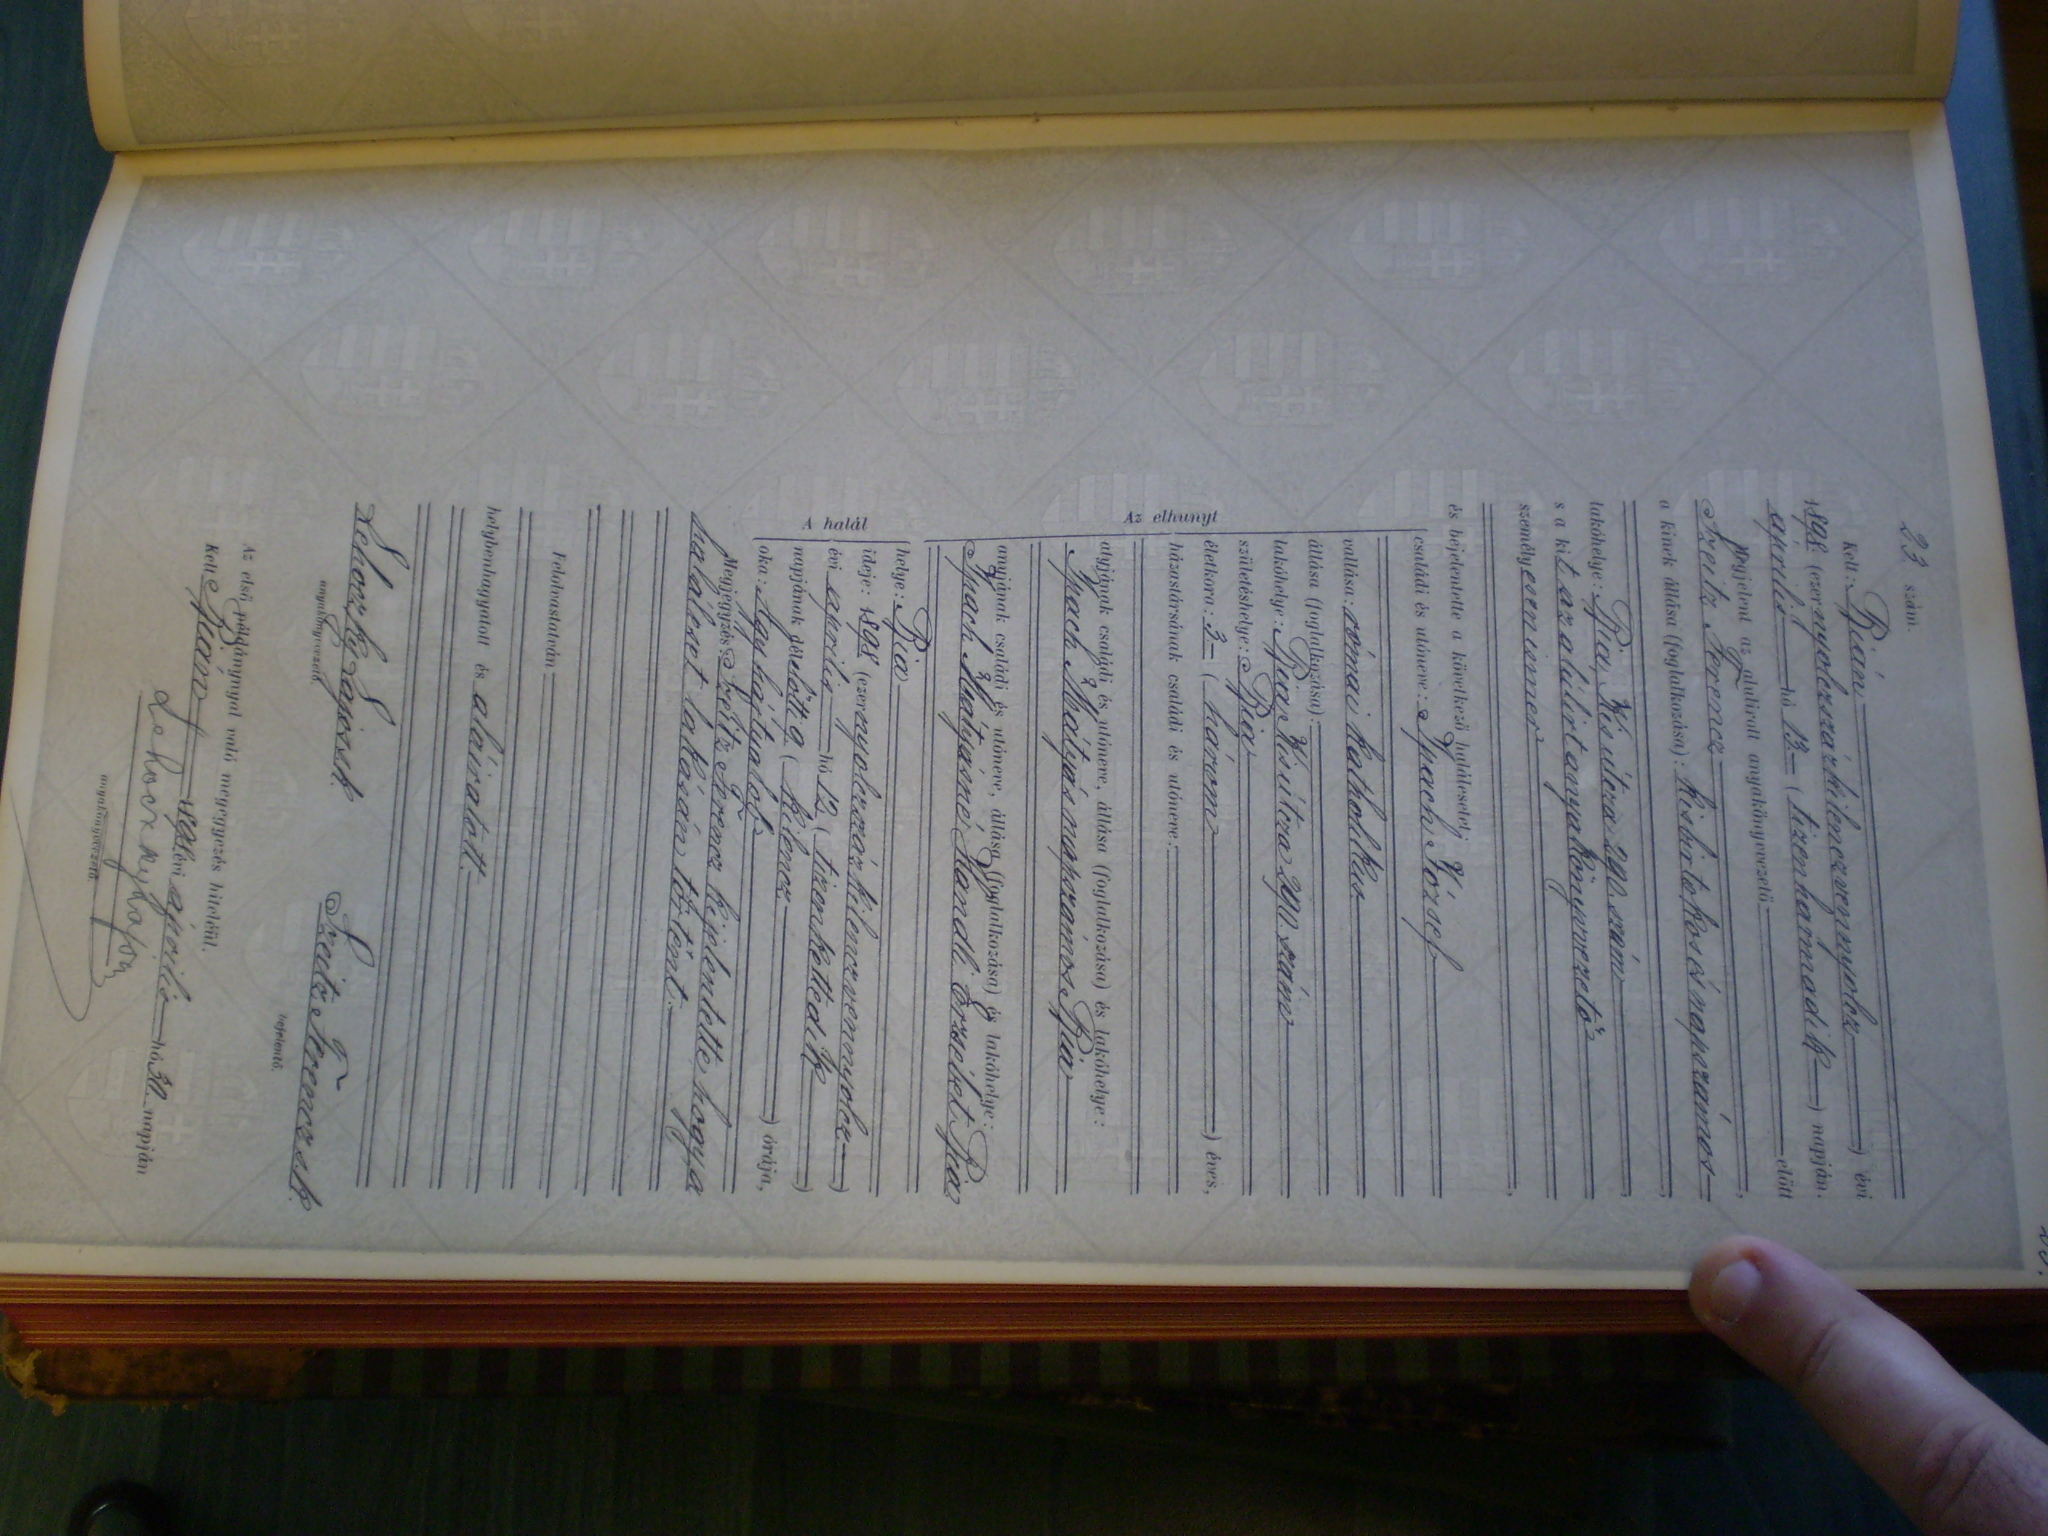 23. szám.
Kelt: Bián
1898. (ezernyolczszázkilenczvennyolcz) évi
április hó 13 (tizenharmadik) napján.
Megjelent az alulirott anyakönyvvezető előtt
Szeitz Ferencz,
a kinek állása (foglalkozása): kisbirtokos és napszámos
lakóhelye: Bia, Kis útcza 290. szám,
s a kit az alúlirt anyakönyvvezető
személyesen ismer,
és bejelentette a következő halálesetet:
Az elhunyt
családi és utóneve: Spach József
vallása: római katholikus
állása (foglalkozása):
lakóhelye: Bia, Kis útcza 290. szám
születéshelye: Bia
életkora: 3 (három) éves,
házastársának családi és utóneve:
atyjának családi és utóneve, állása (foglalkozása) és lakóhelye:
Spach Mátyás napszámos Bia
anyjának családi és utóneve, állása (foglalkozása) és lakóhelye:
Spach Mátyásné Handli Erzsébet Bia
A halál
helye: Bia
ideje: 1898 (ezernyolczszázkilenczvennyolcz)
évi április hó 12 (tizenkettedik)
napjának délelőtti 9 (kilencz) órája,
oka: Agyhártyalob
Megjegyzés: Szeitz Ferencz kijelentette hogy a
haláleset lakásán történt.
Felolvastatván
helybenhagyatott és aláiratott.
Lehoczky Lajos s.k.
anyakönyvvezető.
Szeitz Ferencz s.k.
bejelentő.
Az első példánynyal való megegyezés hiteléül.
Kelt Bián 1898 évi április hó 30. napján
Lehoczky Lajos
anyakönyvvezető.